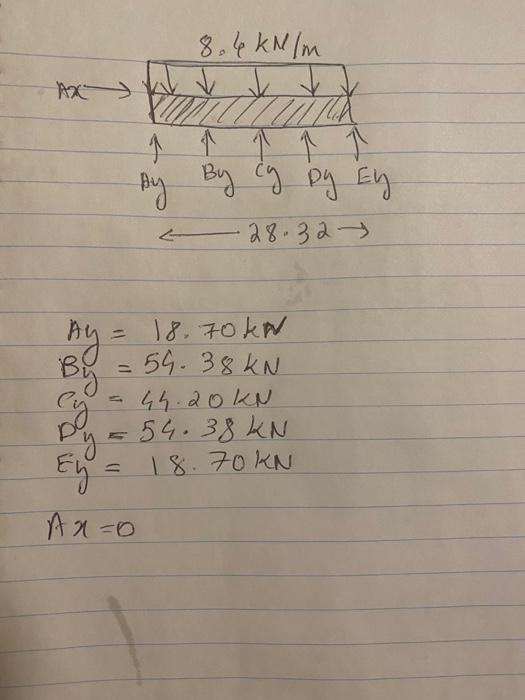 8.4 kN/m
Ax
Ay By Cy Dy Ey
28.32
Ay = 18.70 kN
By = 54.38 kN
Cy = 44.20 kN
Dy = 54.38 kN
Ey = 18.70 kN
Ax = 0